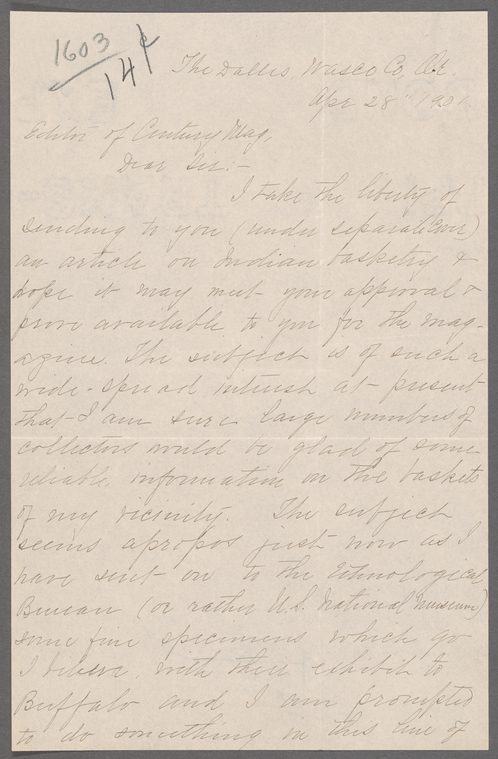 1603
14¢
The Dalles, Wasco Co, Or.
Apr 28" 1901
Editor of Century Mag,
Dear Sir:-
I take the liberty of
sending to you (under separate cover)
an article on Indian basketry &
hope it may meet your approval &
prove available to you for the mag-
azine. The subject is of such a
wide-spread interest at present
that I am sure large numbers of
collectors would be glad of some
reliable information on the baskets
of my vicinity. The subject
seems apropos just now as I
have sent on to the Ethnological
Bureau (or rather U.S. National Museum)
some fine specimens which go
I believe, with their exhibit to
Buffalo and I am prompted
to do something on this line of